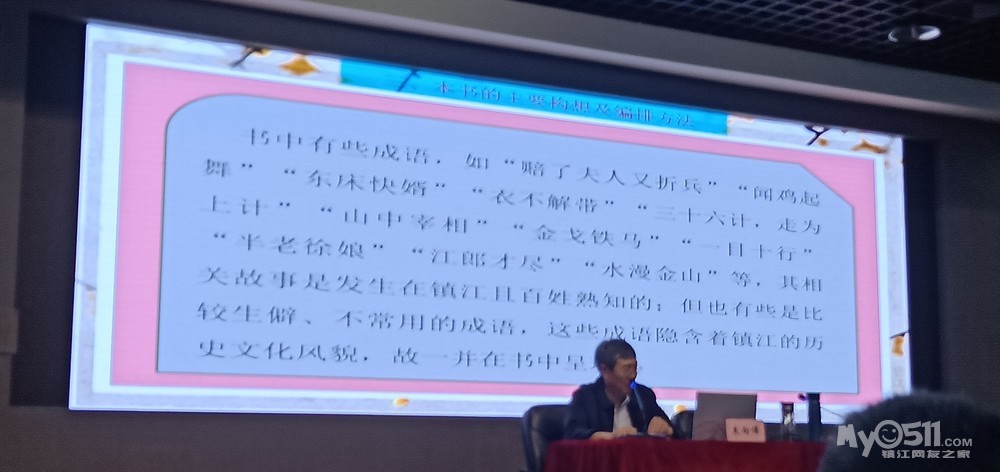 本书的主要构想及编排方法
书中有些成语，如“赔了夫人又折兵”“闻鸡起
舞”“东床快婿”“衣不解带”“三十六计，走为
上计”“山中宰相”“金戈铁马”“一目十行”
“半老徐娘”“江郎才尽”“水漫金山”等，其相
关故事是发生在镇江且百姓熟知的；但也有些是比
较生僻、不常用的成语，这些成语隐含着镇江的历
史文化风貌，故一并在书中呈
My0511.COM
镇江网友之家